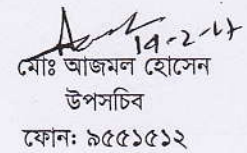 মোঃ আজমল হোসেন
উপসচিব
ফোন: ৯৫৫১৫১২